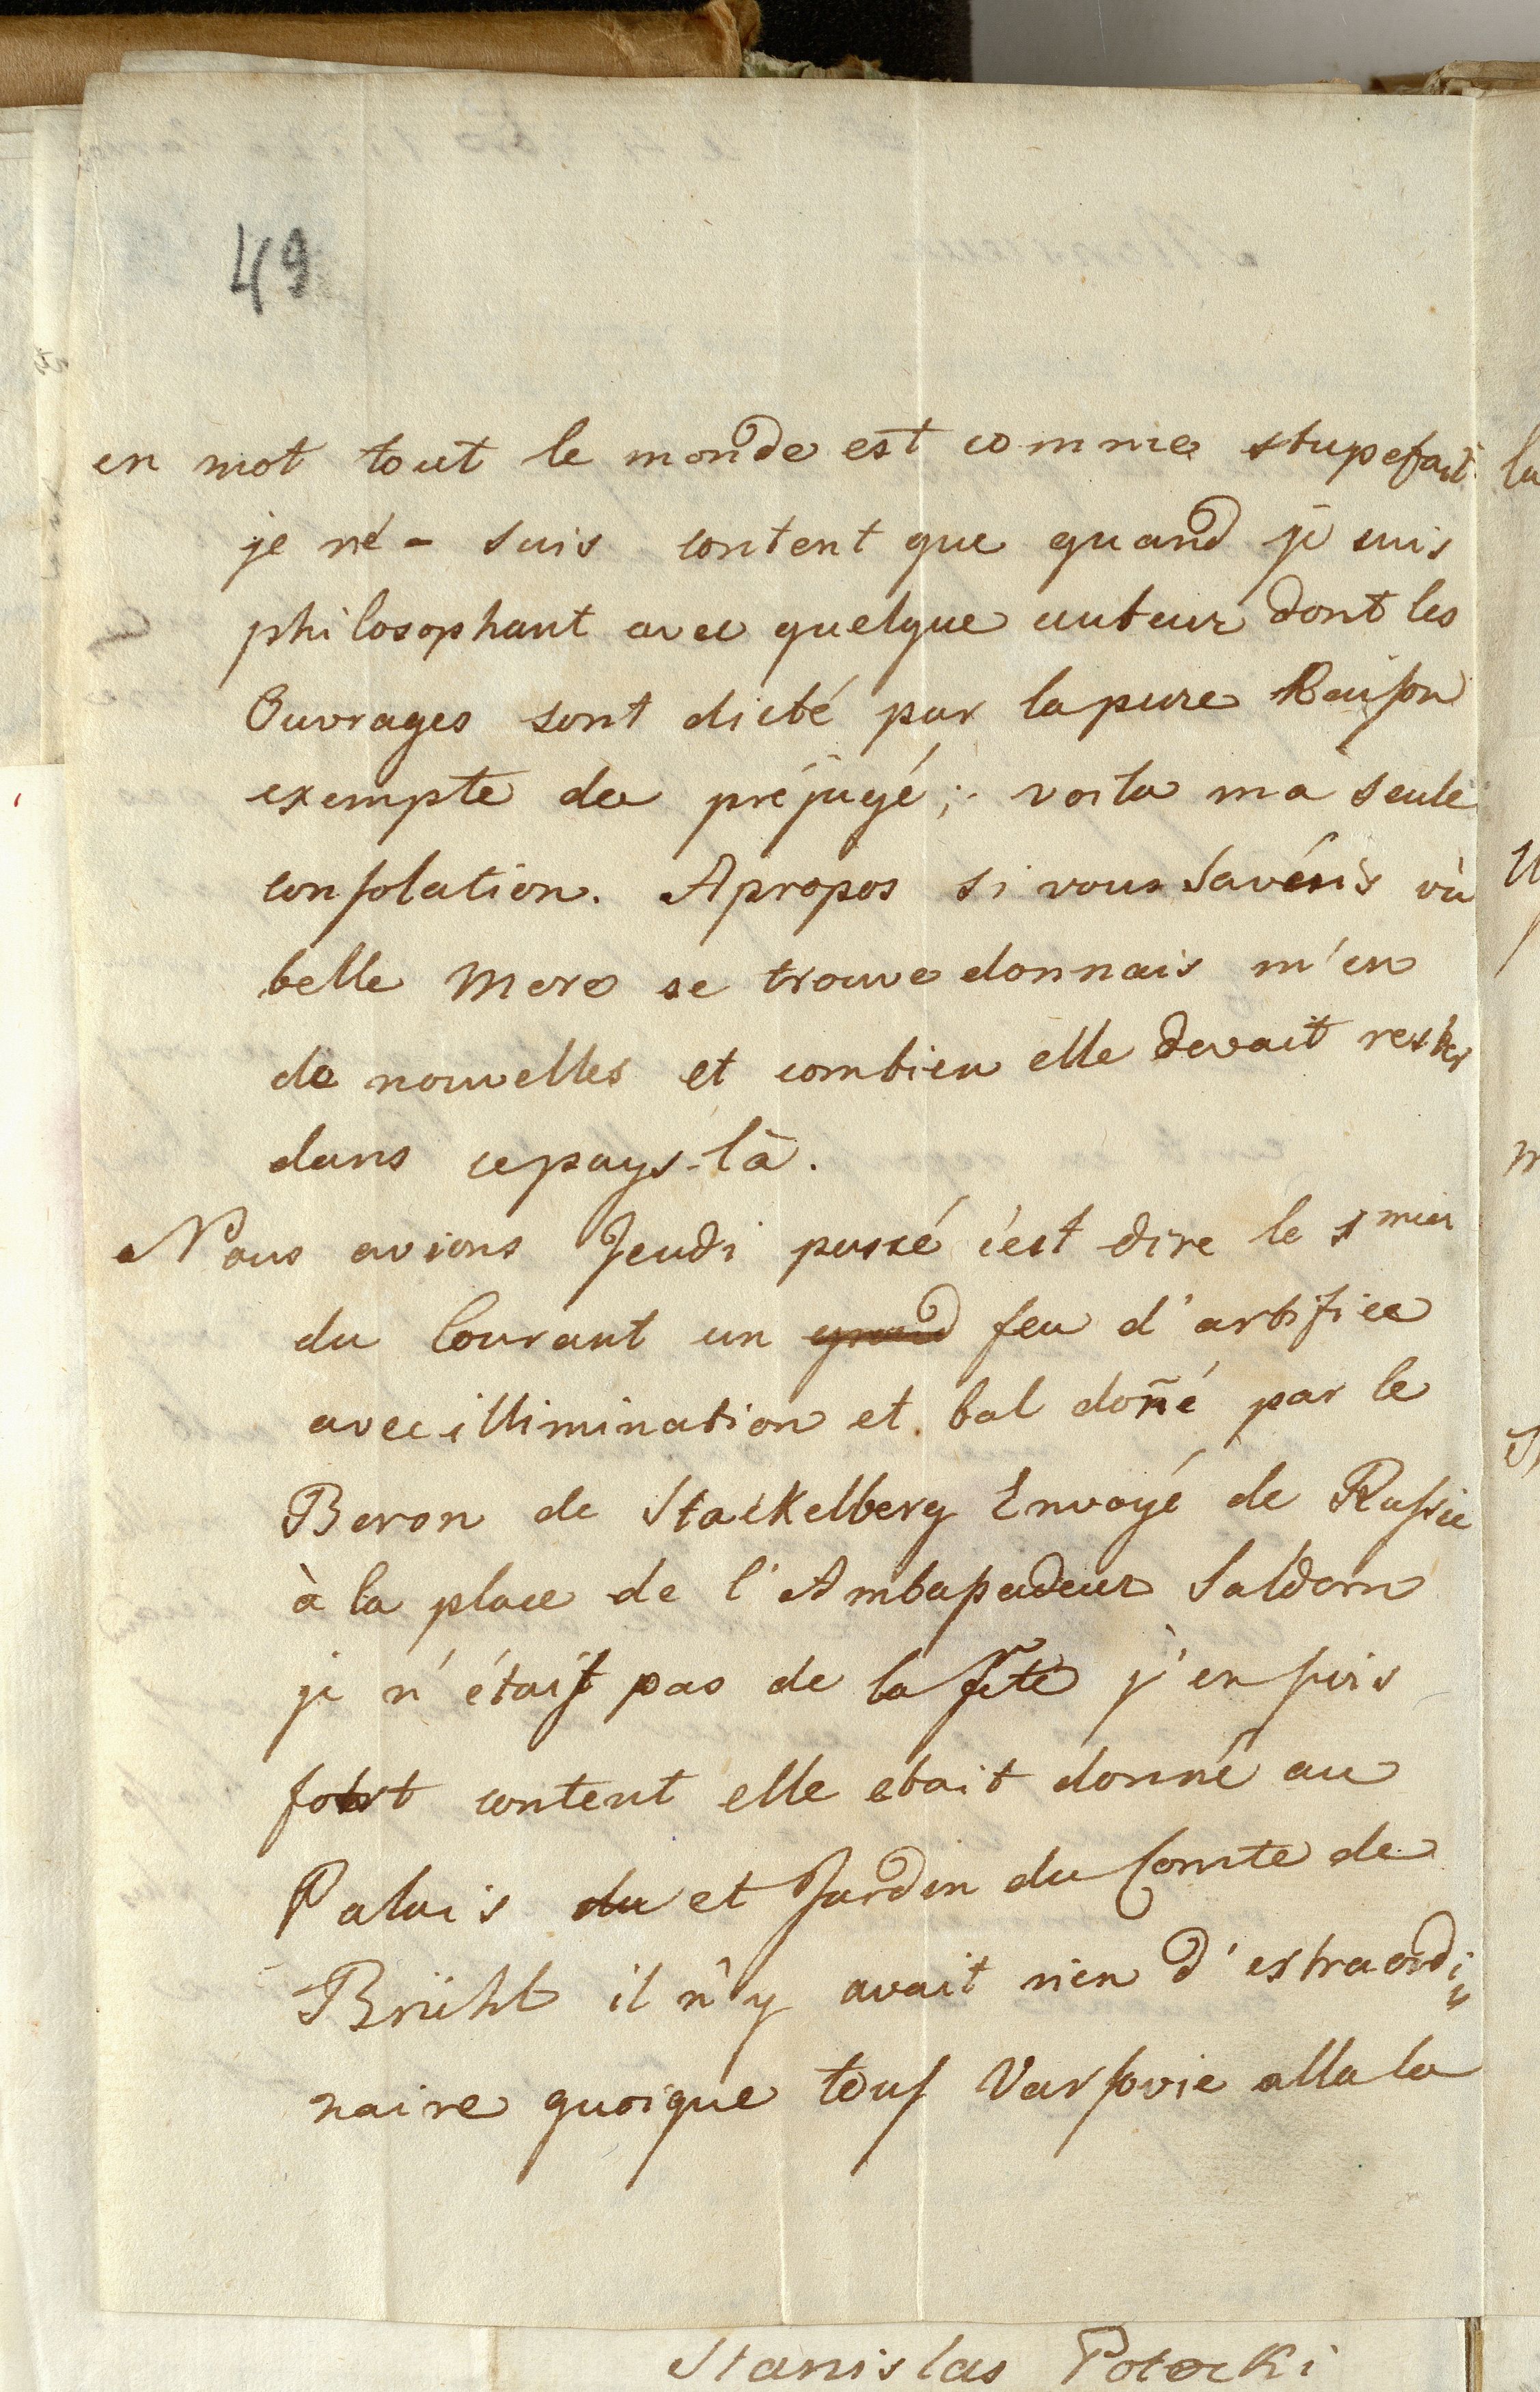 49
en mot tout le monde est comme stupefait
je né - suis content que quand je suis
philosophant avec quelque auteur dont les
Ouvrages sont dicté par la pure Raison
exempte de préjugé; voila ma seule
consolation. Apropos si vous savés où
belle Mere se trouve donnais m'en
de nouvelles et combien elle devait rester
dans ce pays-là.
Nous avions Jeudi passé c'est dire le
du Courant un grand feu d'artifice
avec illimination et bal doñé par le
Beron de Stackelberg Envoyé de Russie
à la place de l'Ambassadeur Saldern
je n'étais pas de la fête j'en suis
fort content elle etait donné au
Palais du et Jardin du Comte de
Brühl il n'y avait rien d'extraordi
naire quoique tous Varsovie alla la
Stanislas Potocki